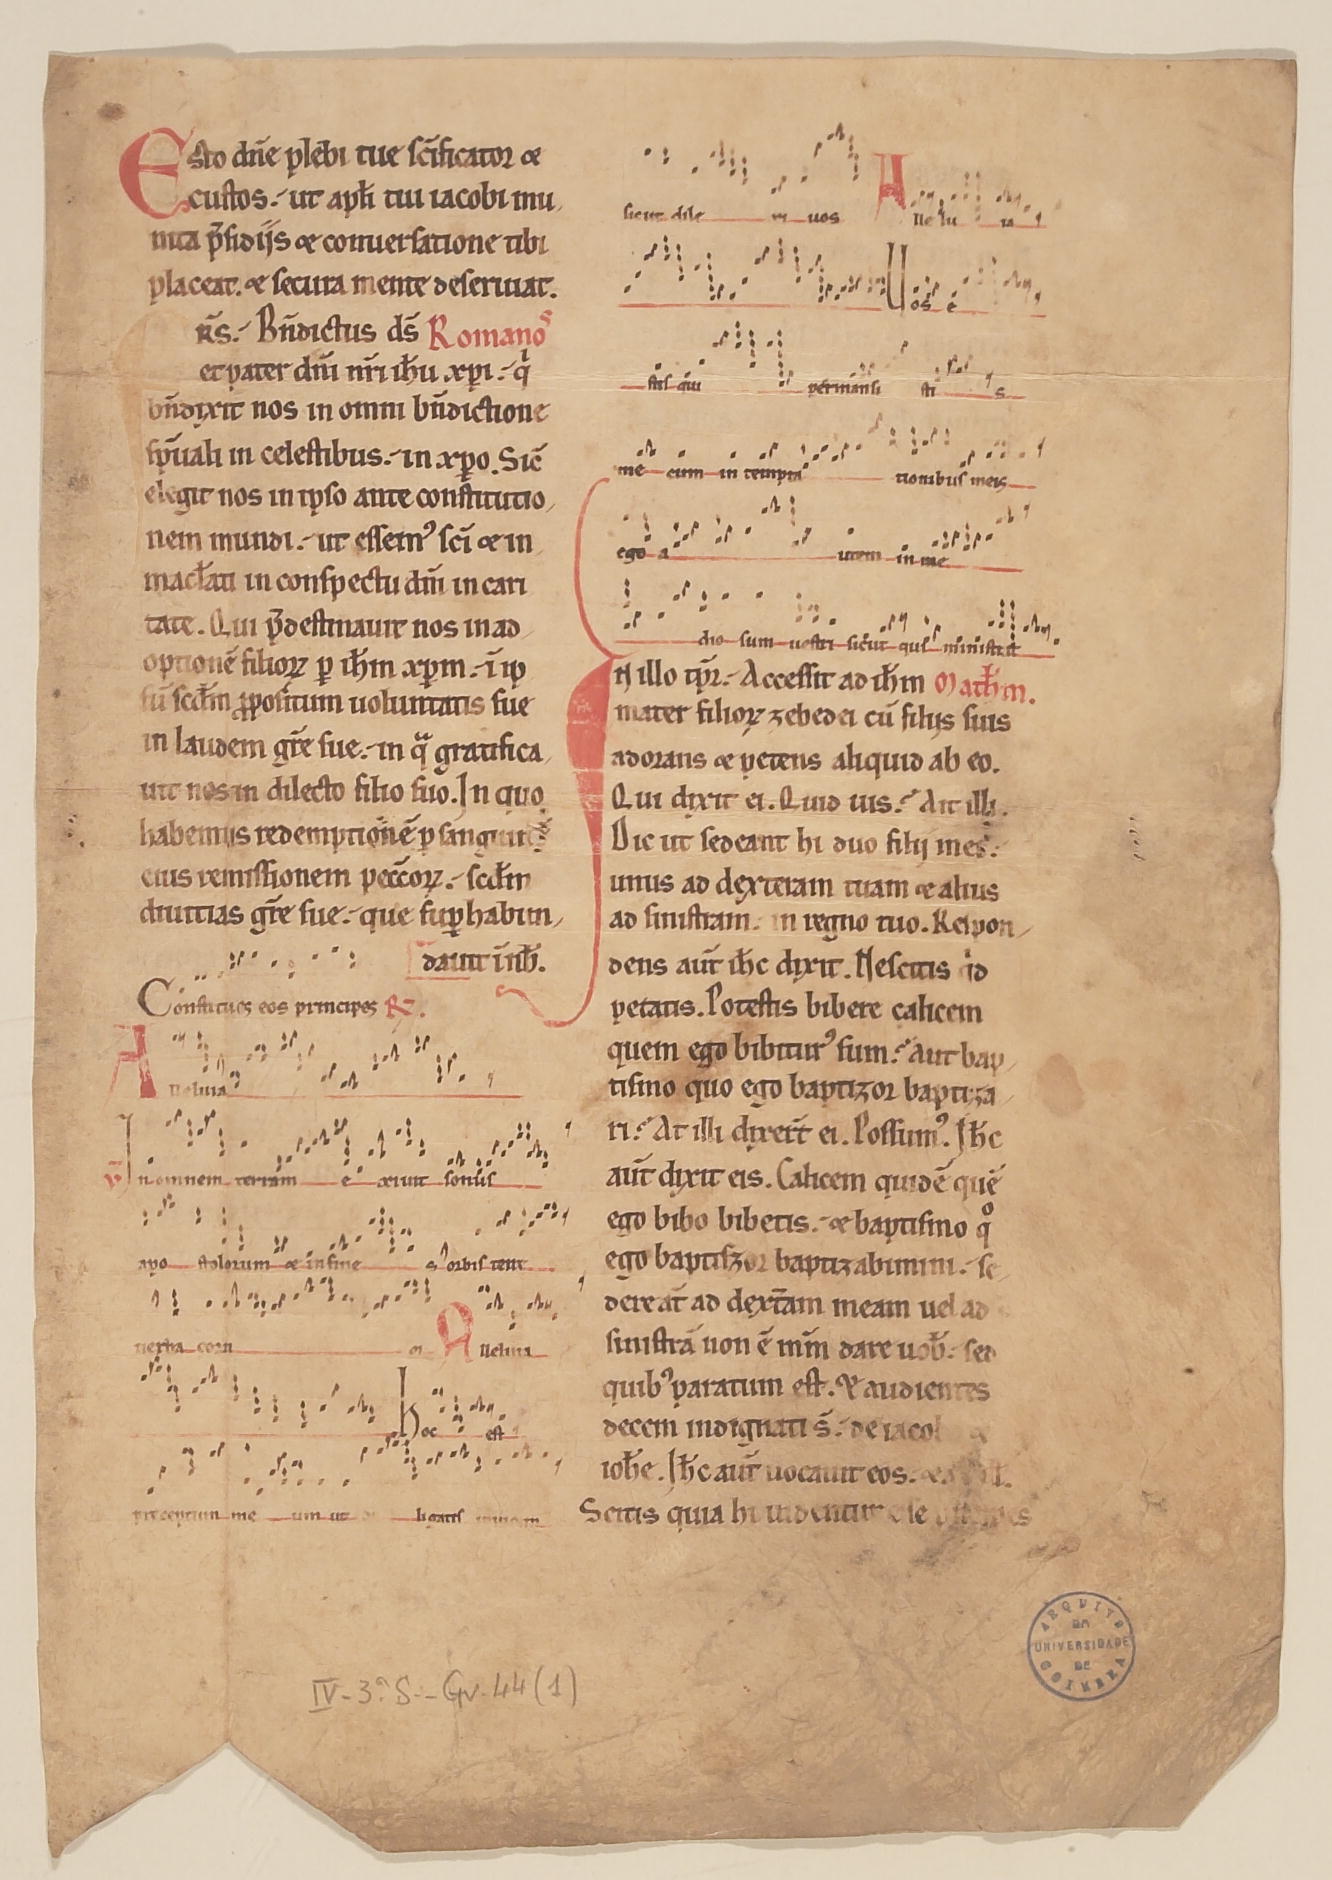 Esto dn̄e plebi tue sc̄ificator ⁊
custos. ut apl̄i tui iacobi mu
nita p̄sidijs ⁊ conuersatione tibi
placeat. ⁊ secura mente deseruiat.
Rs̄. Bn̄dictus ds̄ Romanoˢ
et pater dn̄i nr̄i ih̄u xp̄i. qͥ
bn̄dixit nos in omni bn̄dictione
sp̄uali in celestibus. in xp̄o. Sic̄
elegit nos in ipso ante constitutio
nem mundi. ut essemꝰ sc̄i ⁊ in
mac̄lati in conspectu dn̄i in cari
tate. Qui p̄destinauit nos in ad
optionē filioꝝ ꝑ ih̄m xp̄m. ī ip
sū sc̄dm ꝓpositum uoluntatis sue
in laudem gr̄e sue. in qᷓ gratifica
uit nos in dilecto filio suo. In quo
habemus redemptionē ꝑ sanguinē
eius remissionem pecc̄oꝝ. sc̄dm
diuitias gr̄e sue. que suꝑhabun
dauit ī nob̄.
Constitues eos principes ℟.
Alleluia
℣ In omnem terram e xiuit sonus
apo stolorum ⁊ in fine s orbis terre
uerba eorum Alleluia
hoc est
preceptum me um ut ligatis inuicem
sicut dile xi uos Alle lu ia
Uos e
stis qui permansi sti s
me cum in tempta tionibus meis
ego a utem in me
dio sum uestri sicut qui ministrat
In illo tp̄r. Accessit ad ih̄m Math̄m.
mater filioꝝ zebedei cū filijs suis
adorans ⁊ petens aliquid ab eo.
Qui dixit ei. Quid uis. Ait illi.
Dic ut sedeant hi duo filij mei.
unus ad dexteram tuam ⁊ alius
ad sinistram. in regno tuo. Respon
dens aut̄ ih̄c dixit. Nescitis qͥd
petatis. Potestis bibere calicem
quem ego bibiturꝰ sum. Aut bap
tismo quo ego baptizor baptiza
ri. At illi dixer̄t ei. Possumꝰ. Ih̄c
aut̄ dixit eis. Calicem quidē quē
ego bibo bibetis. ⁊ baptismo qͦ
ego baptiszor baptizabimini. se
dere at̄ ad dext̄am meam uel ad
sinistrā non ē mm̄ dare uob̄. sed
quibꝰ paratum est. Et audientes
decem indignati s̄. de iacob ⁊
ioh̄e. Ih̄c aut̄ uocauit eos.
Scitis quia hi uidentur
IV - 3ª S. - Gv. 44 (1)
ARQUIVO
DA
UNIVERSIDADE
DE
COIMBRA